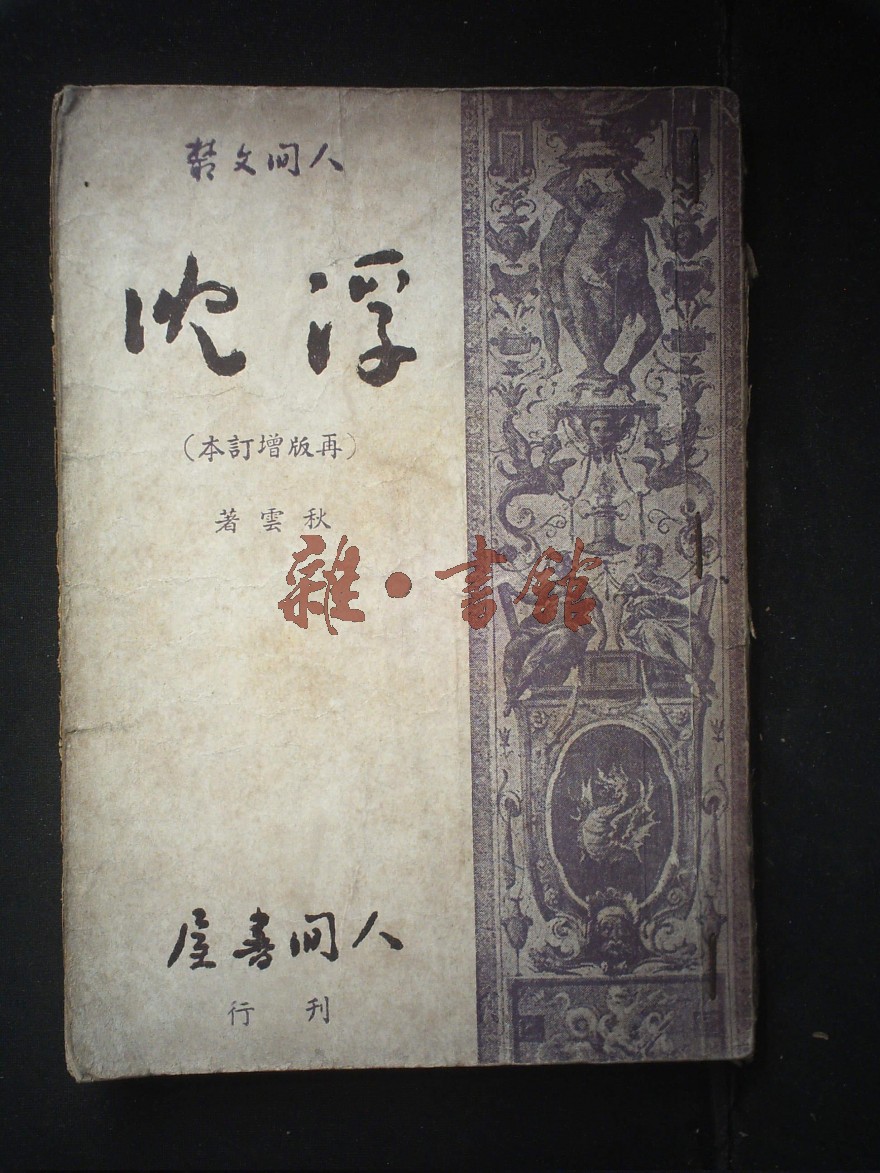 人间文丛
浮沈
(再版增訂本)
秋雲著
雜·書館
人间書屋
刊行